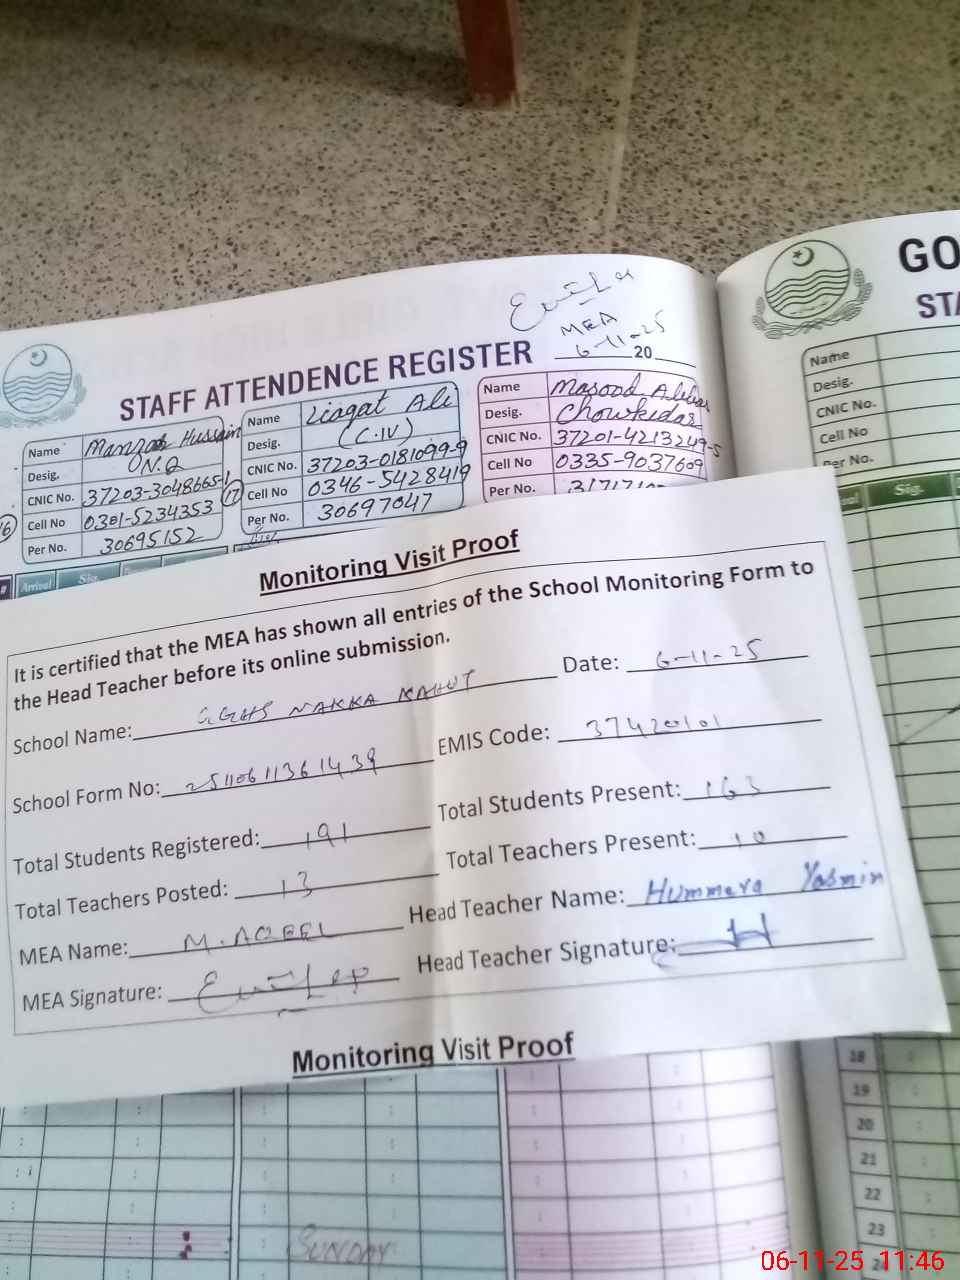 GO
STA
MEA
6-11-25
STAFF ATTENDENCE REGISTER 20
Name Manzar Hussain
Desig. N.Q
CNIC No. 37203-3048665-1
Cell No 0301-5234353
Per No. 30695152
17
Name Liaqat Ali
Desig. (C.IV)
CNIC No. 37203-0181099-9
Cell No 0346-5428419
Per No. 30697047
Name Masood Akbar
Desig. Chowkidar
CNIC No. 37201-4213249-5
Cell No 0335-9037609
Per No.
Name
Desig.
CNIC No.
Cell No
Per No.
Arrival Sig.
Sig.
Monitoring Visit Proof
It is certified that the MEA has shown all entries of the School Monitoring Form to
the Head Teacher before its online submission.
School Name: GGHS NAKKA KAHUT Date: 6-11-25
School Form No: 25110611361439 EMIS Code: 37420101
Total Students Registered: 191 Total Students Present: 163
Total Teachers Posted: 13 Total Teachers Present: 10
MEA Name: M. AQEEL Head Teacher Name: Hummera Yasmin
MEA Signature: Head Teacher Signature:
Monitoring Visit Proof
18
19
20
21
22
23
24
SUNDAY
06-11-25 11:46